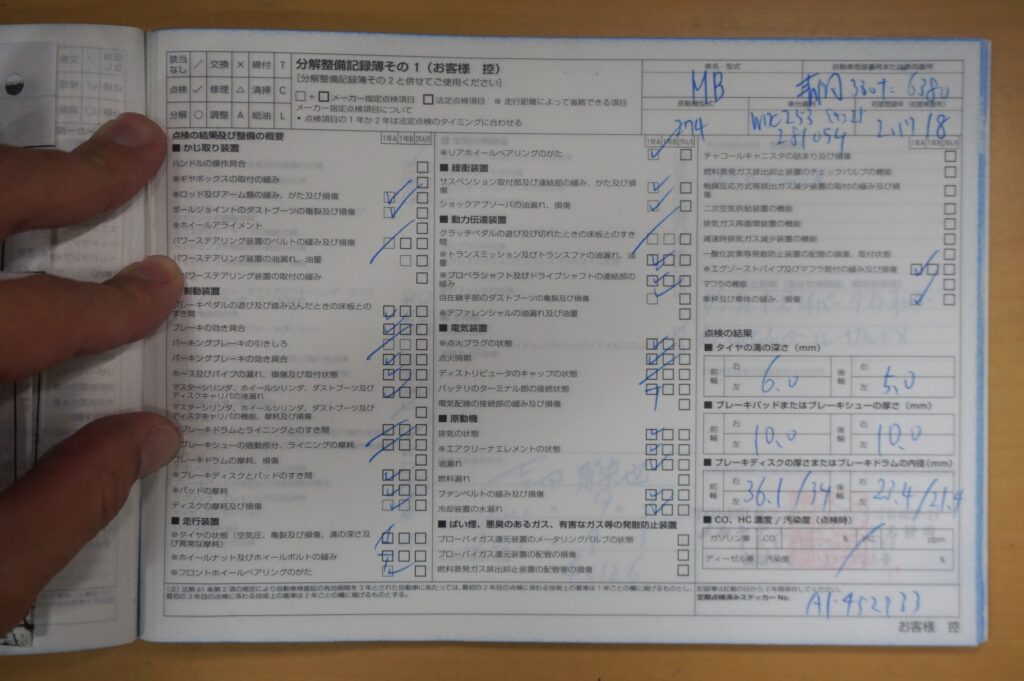 該当なし ／ 交換 × 締付 T
点検 ✓ 修理 △ 清掃 C
分解 ○ 調整 A 給油 L
分解整備記録簿その1（お客様 控）
[分解整備記録簿その2と併せてご使用ください]
□+□メーカー指定点検項目 □法定点検項目 ※ 走行距離によって省略できる項目
メーカー指定点検項目について
・点検項目の1年か2年は法定点検のタイミングに合わせる
車名 型式
MB
自動車登録番号または車両番号
6380
原動機型式
274
車台番号
WDC253
281054
点検の結果及び整備の概要
■ かじ取り装置
ハンドルの操作具合
※ギヤボックスの取付の緩み
※ロッド及びアーム類の緩み、がた及び損傷
ボールジョイントのダストブーツの亀裂及び損傷
※ホイールアライメント
パワーステアリング装置のベルトの緩み及び損傷
パワーステアリング装置の油漏れ、油量
パワーステアリング装置の取付の緩み
制動装置
ブレーキペダルの遊び及び踏み込んだときの床板とのすき間
ブレーキの効き具合
パーキングブレーキの引きしろ
パーキングブレーキの効き具合
ホース及びパイプの漏れ、損傷及び取付状態
マスターシリンダ、ホイールシリンダ、ダストブーツ及びディスクキャリパの液漏れ
マスターシリンダ、ホイールシリンダ、ダストブーツ及びディスクキャリパの機能、摩耗及び損傷
ブレーキドラムとライニングとのすき間
ブレーキシューの摺動部分、ライニングの摩耗
ブレーキドラムの摩耗、損傷
※ブレーキディスクとパッドのすき間
※パッドの摩耗
ディスクの摩耗及び損傷
■ 走行装置
※タイヤの状態（空気圧、亀裂及び損傷、溝の深さ及び異常な摩耗）
※ホイールナット及びホイールボルトの緩み
※フロントホイールベアリングのがた
※リアホイールベアリングのがた
■ 緩衝装置
サスペンション取付部及び連結部の緩み、がた及び損傷
ショックアブソーバの油漏れ、損傷
■ 動力伝達装置
クラッチペダルの遊び及び切れたときの床板とのすき間
※トランスミッション及びトランスファの油漏れ、油量
※プロペラシャフト及びドライブシャフトの連結部の緩み
自在継手部のダストブーツの亀裂及び損傷
※デファレンシャルの油漏れ及び油量
■ 電気装置
※点火プラグの状態
点火時期
ディストリビュータのキャップの状態
バッテリのターミナル部の接続状態
電気配線の接続部の緩み及び損傷
■ 原動機
排気の状態
※エアクリーナエレメントの状態
油漏れ
燃料漏れ
ファンベルトの緩み及び損傷
冷却装置の水漏れ
■ ばい煙、悪臭のあるガス、有害なガス等の発散防止装置
ブローバイガス還元装置のメータリングバルブの状態
ブローバイガス還元装置の配管の損傷
燃料蒸発ガス排出抑止装置の配管等の損傷
チャコールキャニスタの詰まり及び損傷
燃料蒸発ガス排出抑止装置のチェックバルブの機能
触媒反応方式等排出ガス減少装置の取付の緩み及び損傷
二次空気供給装置の機能
排気ガス再循環装置の機能
減速時排気ガス減少装置の機能
一酸化炭素等発散防止装置の配管の損傷、取付状態
※エグゾーストパイプ及びマフラ取付の緩み及び損傷
マフラの機能
車枠及び車体の緩み、損傷
点検の結果
■ タイヤの溝の深さ（mm）
前輪 右 左 6.0 後輪 右 左 5.0
■ ブレーキパッドまたはブレーキシューの厚さ（mm）
前輪 右 左 10.0 後輪 右 左 10.0
■ ブレーキディスクの厚さまたはブレーキドラムの内径(mm)
前輪 右 左 36.1/34 後輪 右 左 23.4/21.4
■ CO、HC 濃度 / 汚染度（点検時）
ガソリン車 CO % HC ppm
ディーゼル車 汚染度 %
定期点検済みステッカー No.
お客様 控